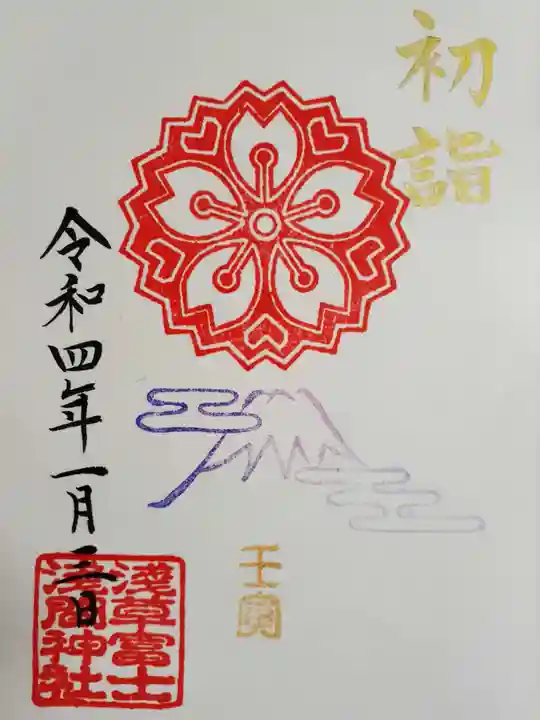 初詣
壬寅
令和四年一月三日
淺草富士
淺間神社